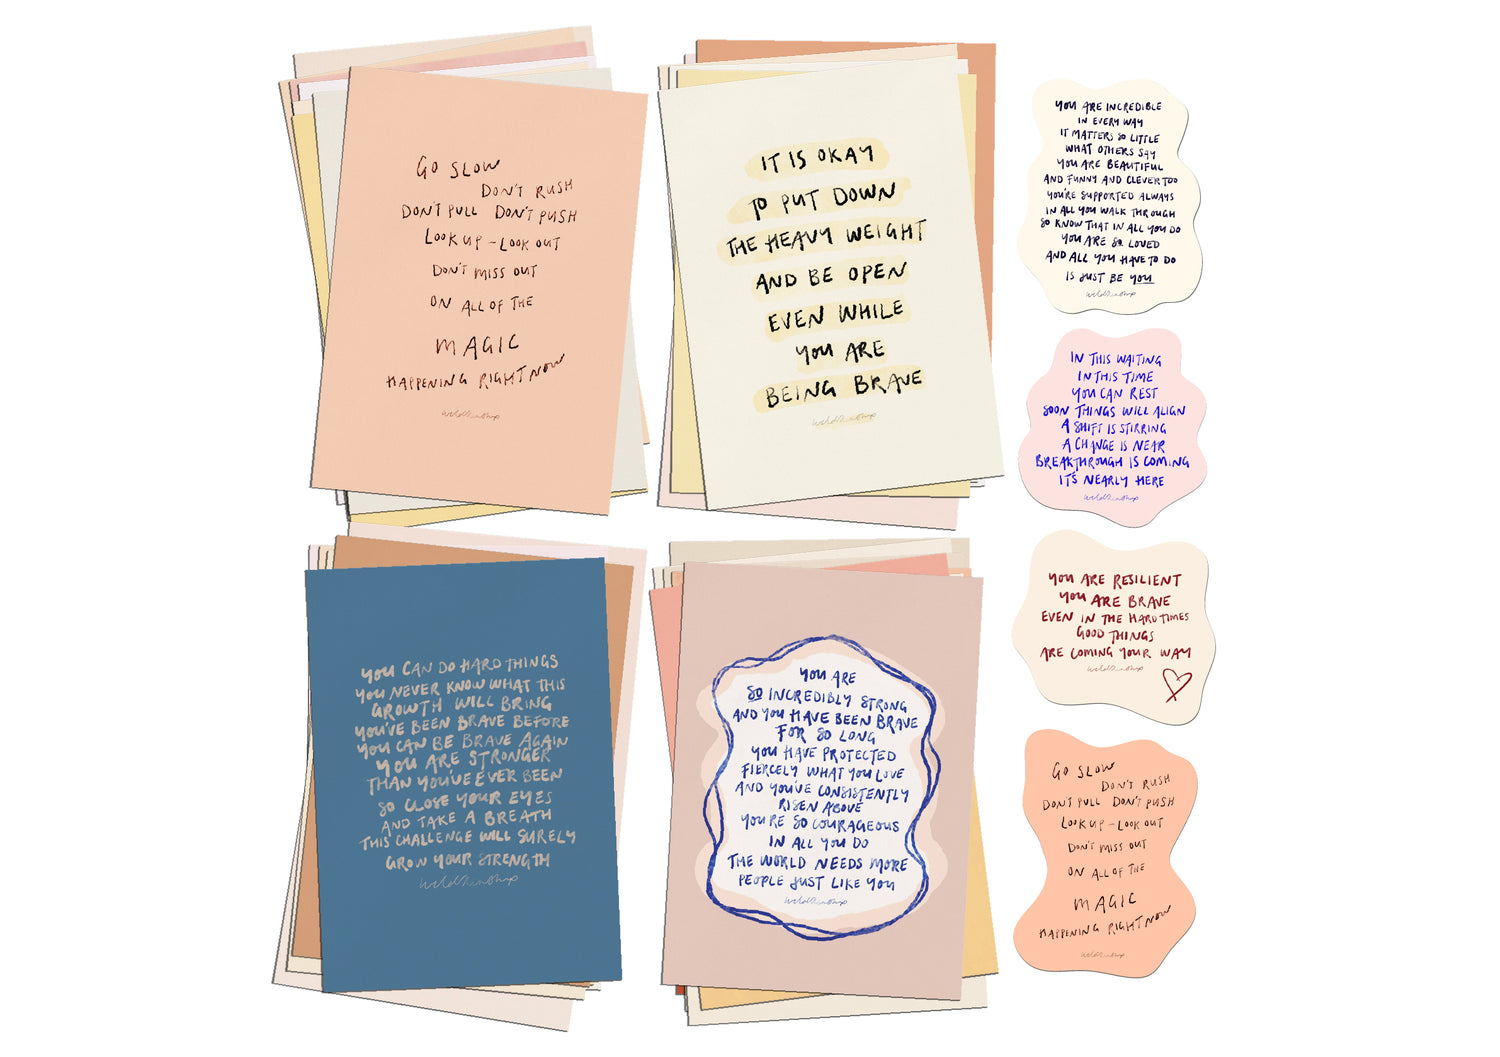 GO SLOW
DON'T RUSH
DON'T PULL DON'T PUSH
LOOK UP - LOOK OUT
DON'T MISS OUT
ON ALL OF THE
MAGIC
HAPPENING RIGHT NOW
IT IS OKAY
TO PUT DOWN
THE HEAVY WEIGHT
AND BE OPEN
EVEN WHILE
YOU ARE
BEING BRAVE
YOU CAN DO HARD THINGS
YOU NEVER KNOW WHAT THIS
GROWTH WILL BRING
YOU'VE BEEN BRAVE BEFORE
YOU CAN BE BRAVE AGAIN
YOU ARE STRONGER
THAN YOU'VE EVER BEEN
SO CLOSE YOUR EYES
AND TAKE A BREATH
THIS CHALLENGE WILL SURELY
GROW YOUR STRENGTH
YOU ARE
SO INCREDIBLY STRONG
AND YOU HAVE BEEN BRAVE
FOR SO LONG
YOU HAVE PROTECTED
FIERCELY WHAT YOU LOVE
AND YOU'VE CONSISTENTLY
RISEN ABOVE
YOU'RE SO COURAGEOUS
IN ALL YOU DO
THE WORLD NEEDS MORE
PEOPLE JUST LIKE YOU
YOU ARE INCREDIBLE
IN EVERY WAY
IT MATTERS SO LITTLE
WHAT OTHERS SAY
YOU ARE BEAUTIFUL
AND FUNNY AND CLEVER TOO
YOU'RE SUPPORTED ALWAYS
IN ALL YOU WALK THROUGH
SO KNOW THAT IN ALL YOU DO
YOU ARE SO LOVED
AND ALL YOU HAVE TO DO
IS JUST BE YOU
IN THIS WAITING
IN THIS TIME
YOU CAN REST
SOON THINGS WILL ALIGN
A SHIFT IS STIRRING
A CHANGE IS NEAR
BREAKTHROUGH IS COMING
IT'S NEARLY HERE
YOU ARE RESILIENT
YOU ARE BRAVE
EVEN IN THE HARD TIMES
GOOD THINGS
ARE COMING YOUR WAY
GO SLOW
DON'T RUSH
DON'T PULL DON'T PUSH
LOOK UP - LOOK OUT
DON'T MISS OUT
ON ALL OF THE
MAGIC
HAPPENING RIGHT NOW